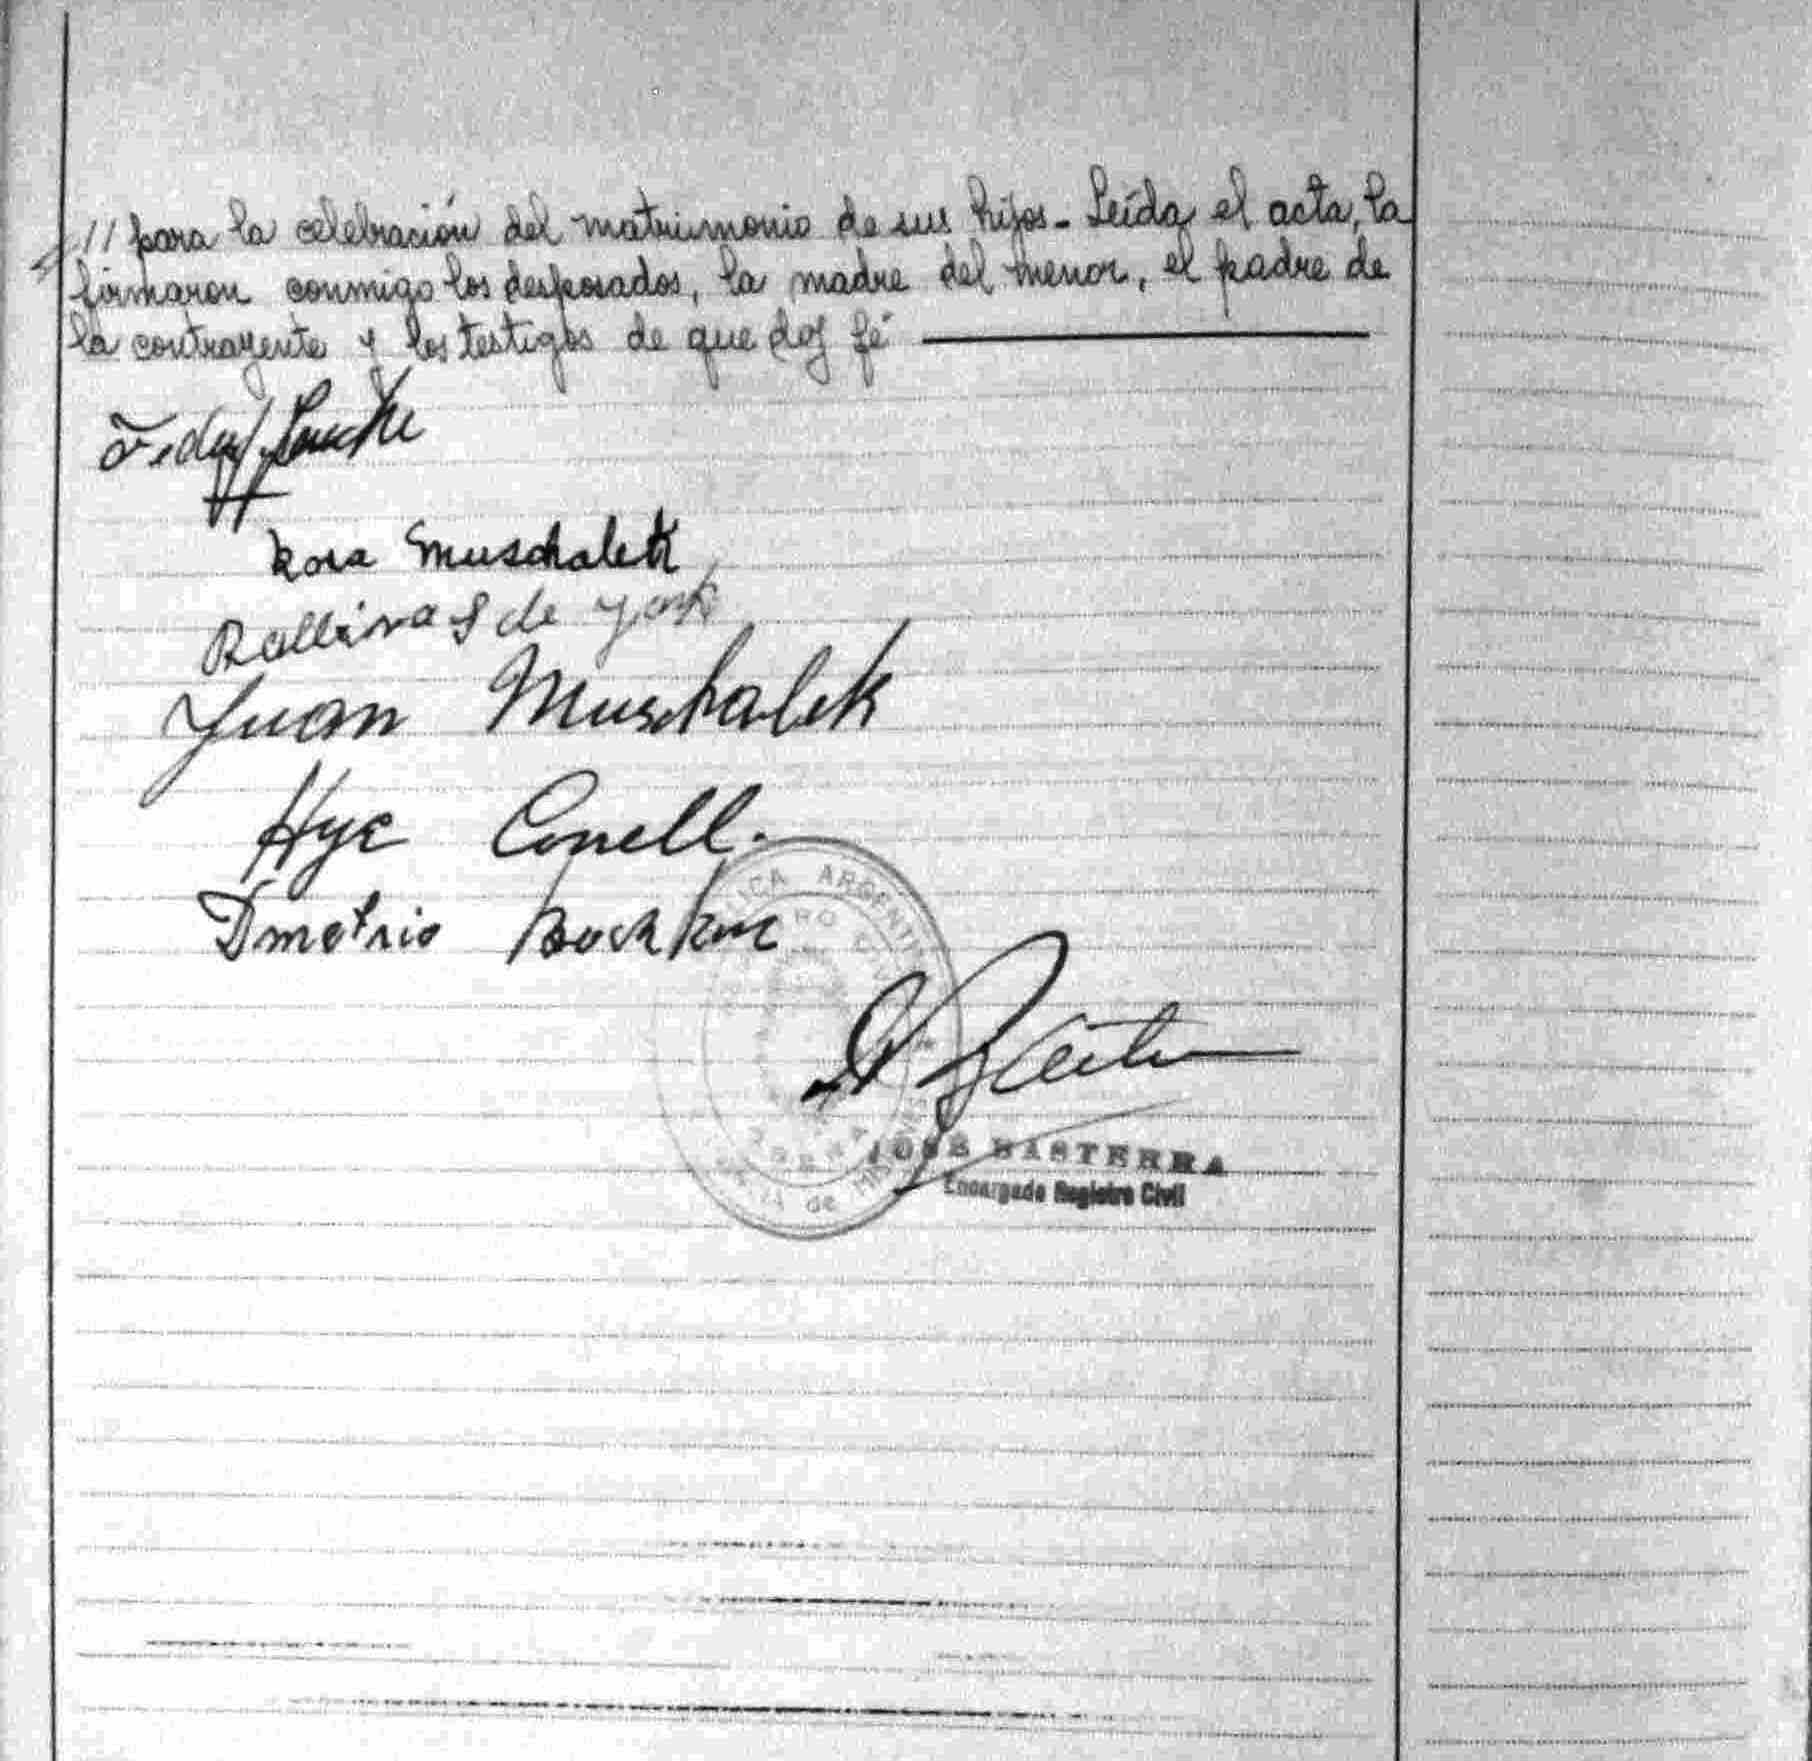 // para la celebración del matrimonio de sus hijos_ Leída el acta, la
firmaron conmigo los desposados, la madre del menor, el padre de
la contrayente y los testigos de que doy fé
Rosa Muschalek
de York
Juan Muschalek
Hye Conell.
Dmetrio
ARGENTINA
JOSÉ BASTERRA
Encargado Registro Civil